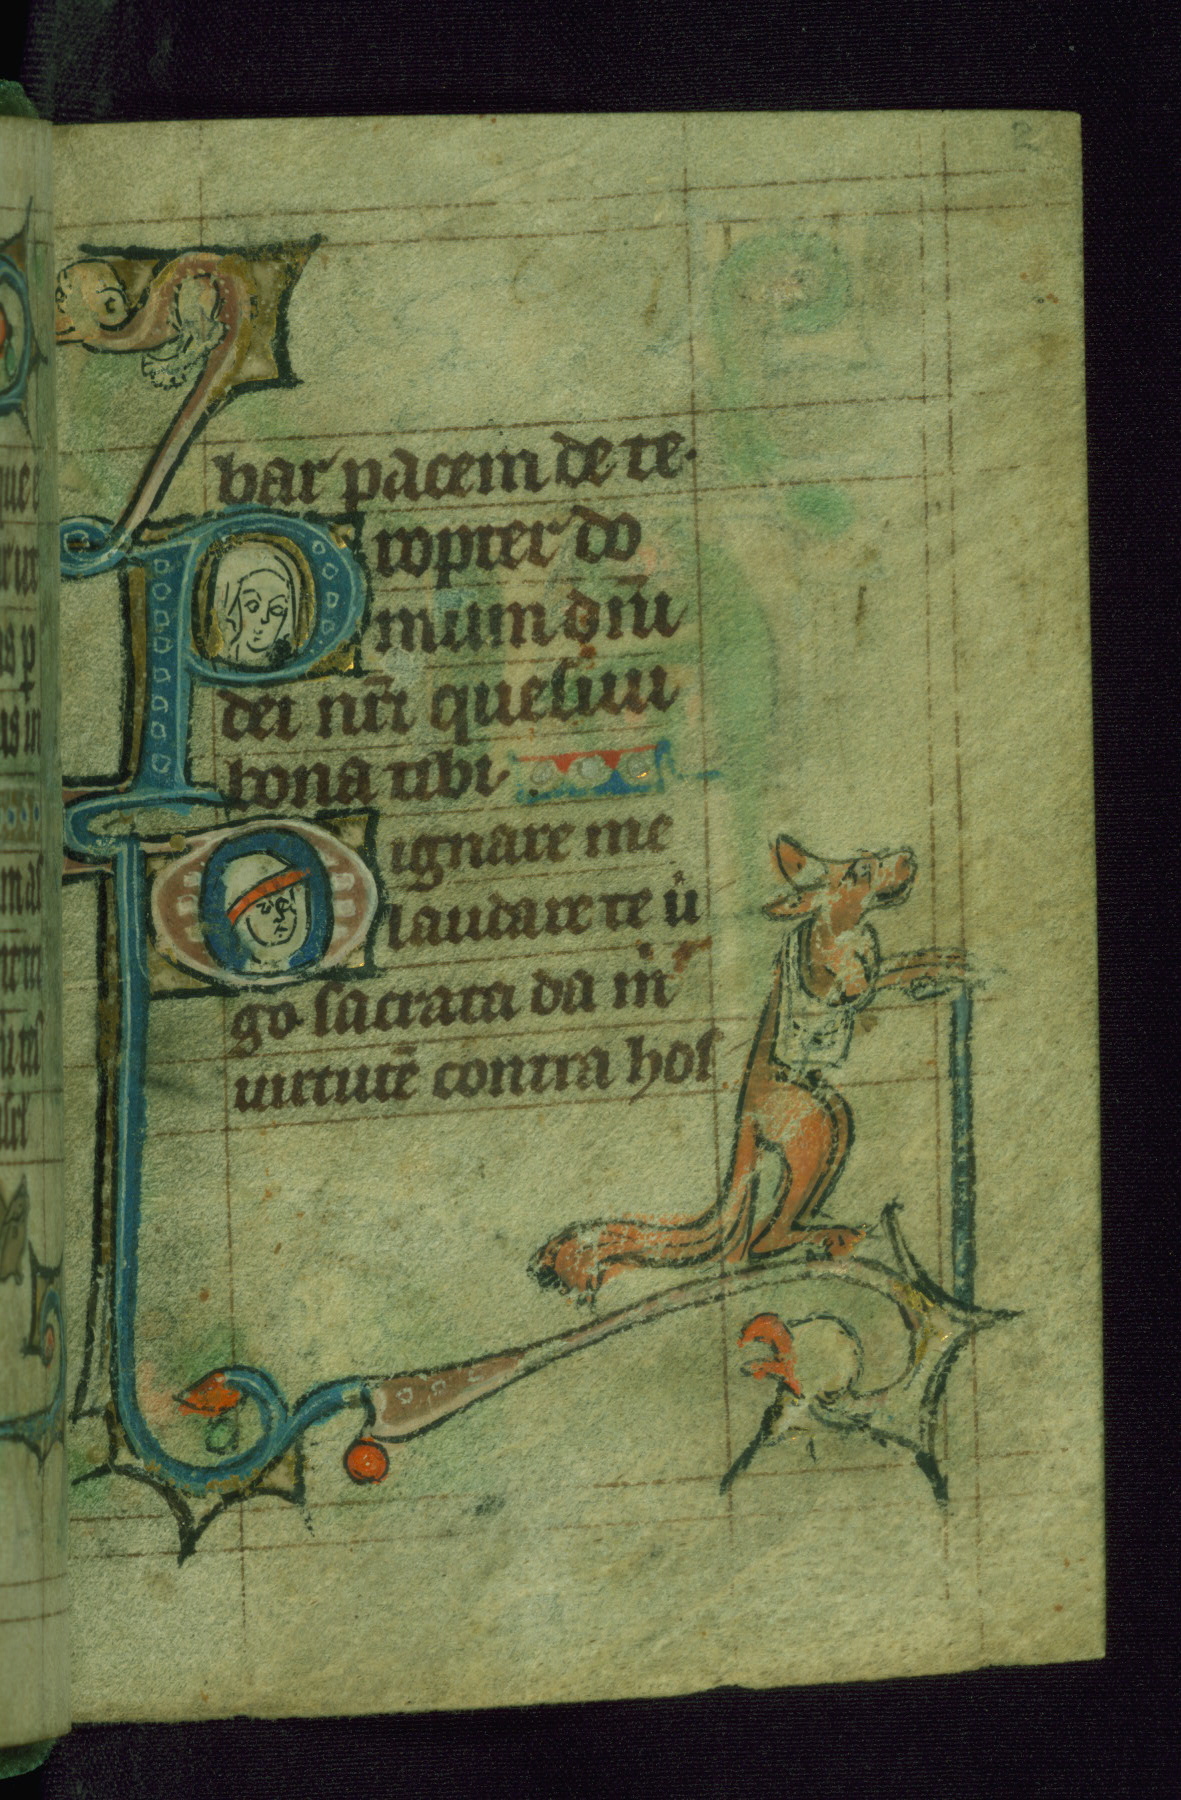 2
bar pacem de te.
Propter do
mum dn̄i
dei nr̄i quesiui
bona tibi
Dignare me
laudare te uͥ
go sacrata da m̄
uirtutē contra hos